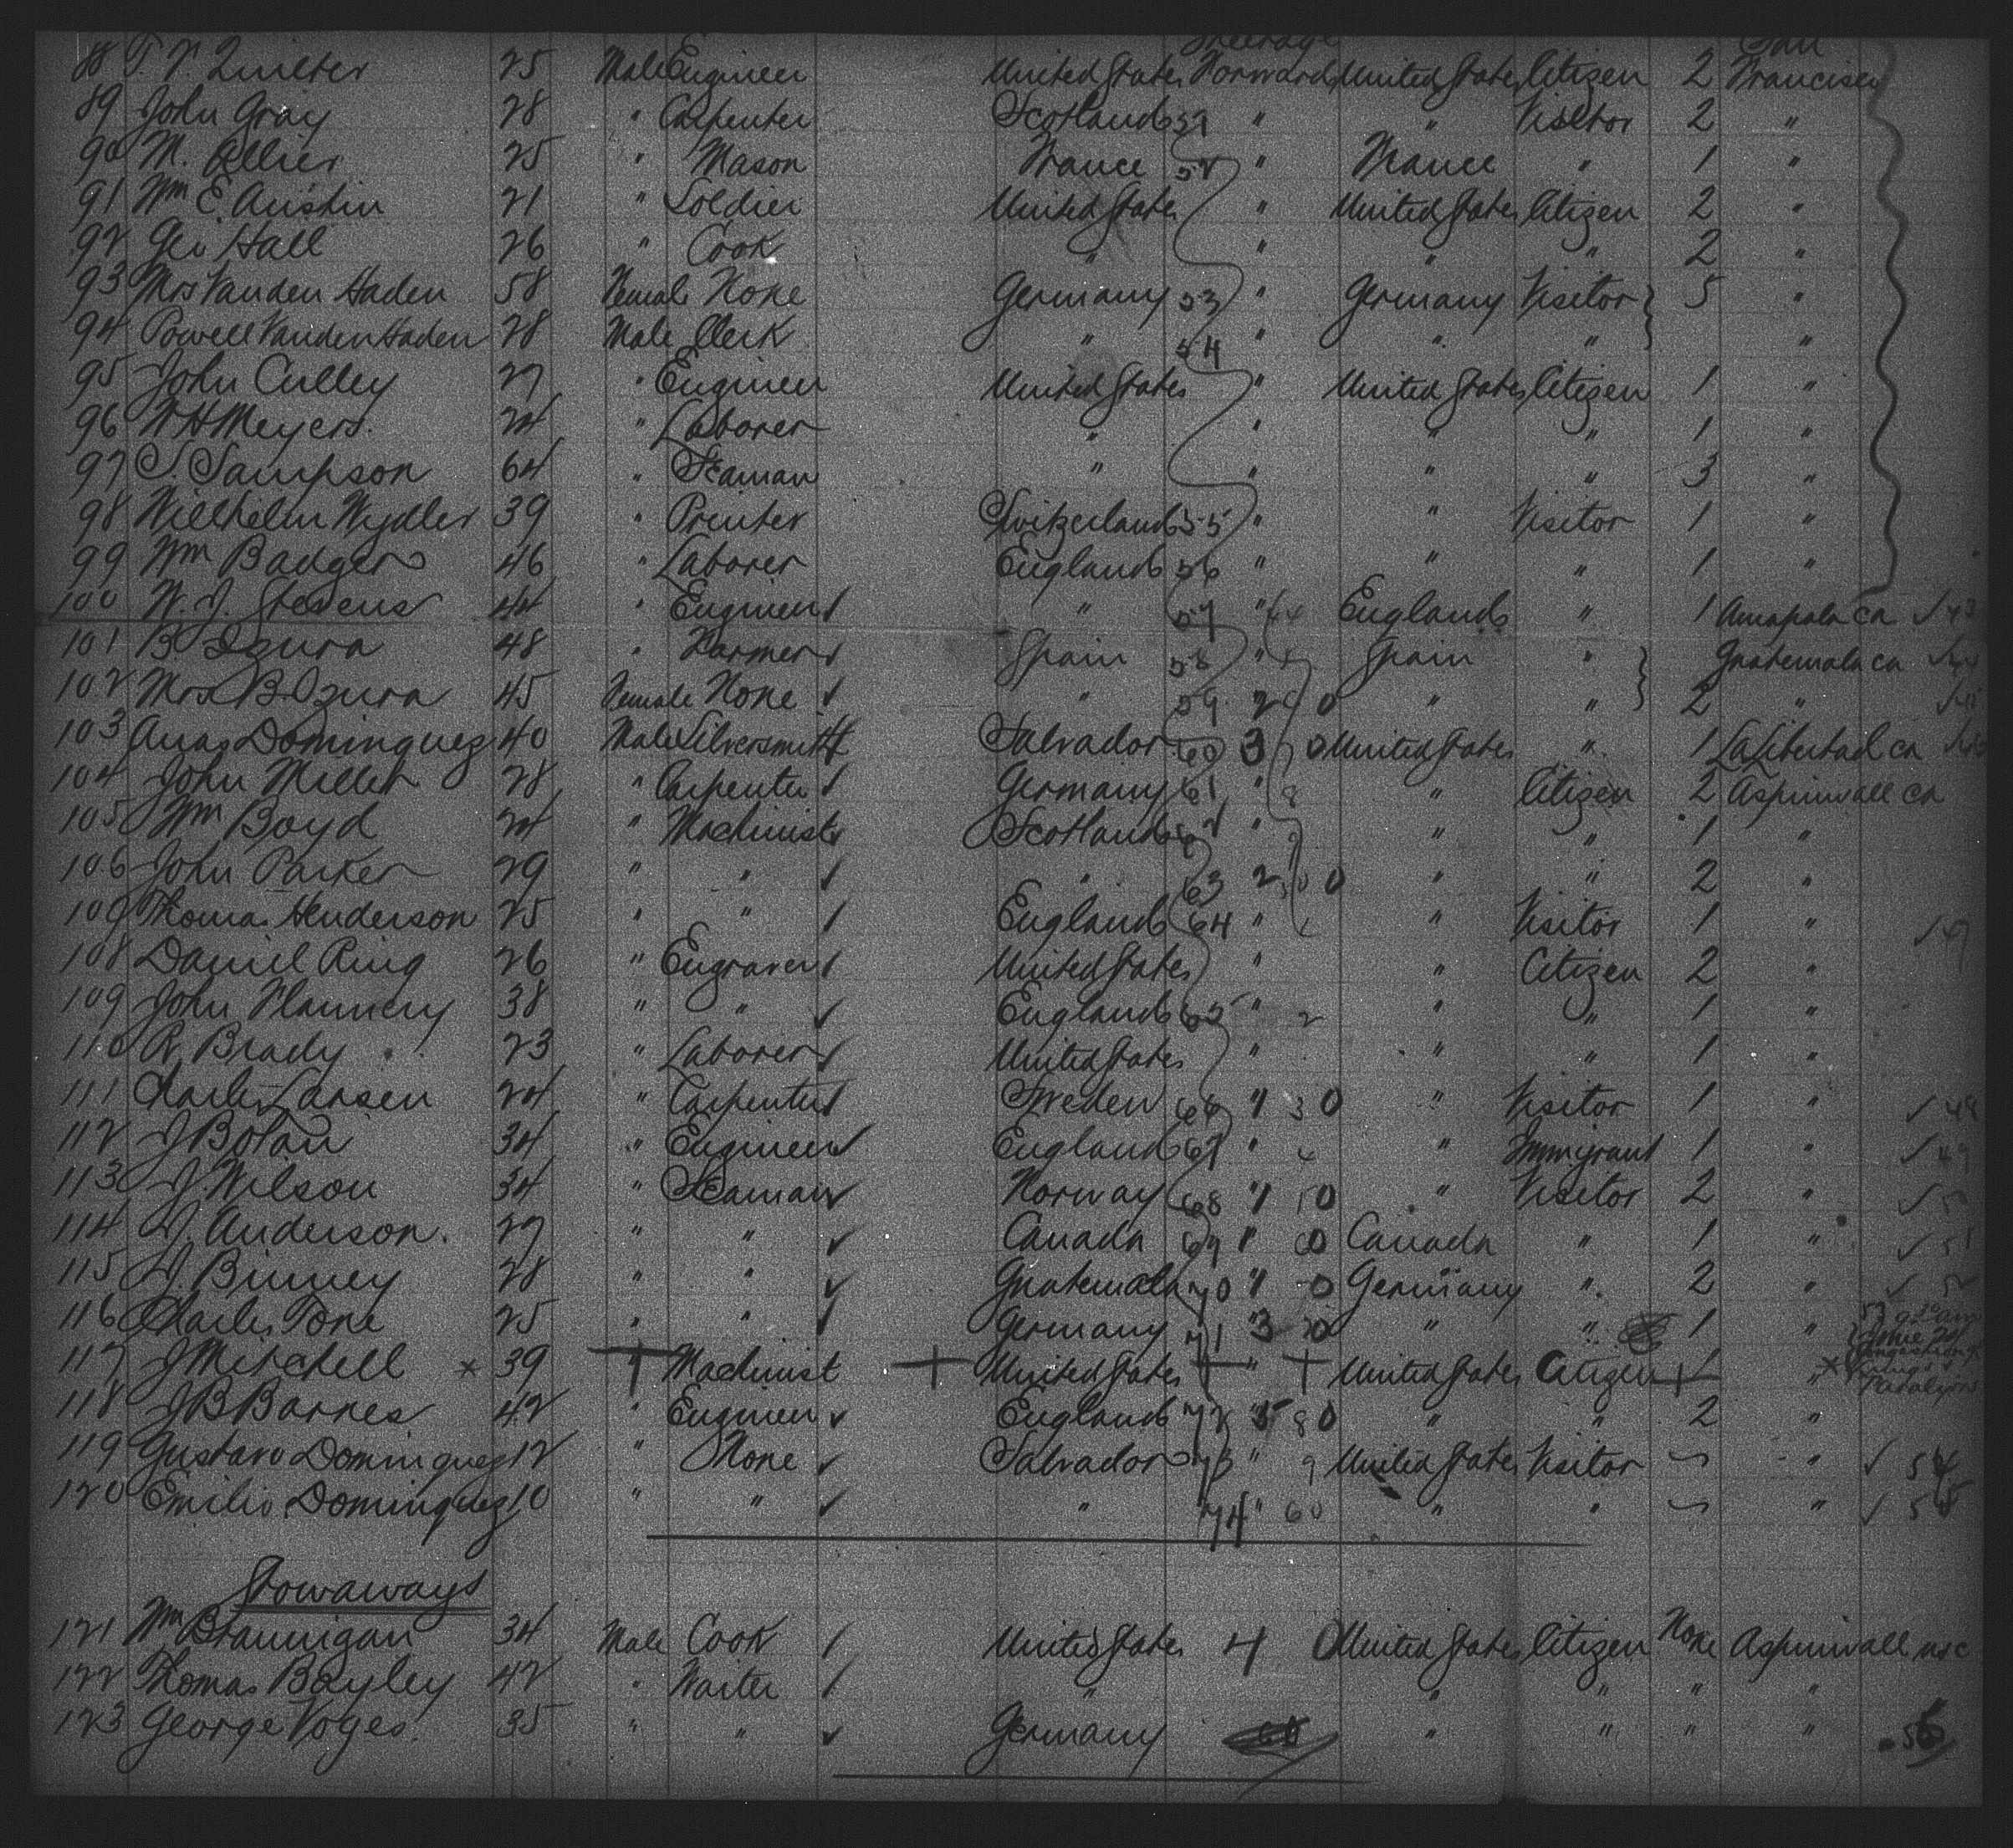 Steerage San
88 T. V. Quilter 25 Male Engineer United States Forward United States Citizen 2 Francisco
89 John Gray 28 " Carpenter Scotland " " Visitor 2 "
90 M. Allier 25 " Mason France " France " 1 "
91 Wm E. Austin 21 " Soldier United States " United States Citizen 2 "
92 Geo Hall 26 " Cook " " " " 2 "
93 Mrs Vanden Haden 58 Female None Germany 53 " Germany Visitor 5 "
94 Powell Vanden Haden 28 Male Clerk " 54 " " " "
95 John Culley 27 " Engineer United States " United States Citizen 1 "
96 W H Meyers. 24 " Laborer " " " " 1 "
97 S. Sampson 64 " Seaman " " " " 3 "
98 Willhelm Wydler 39 " Printer Switzerland 55 " " Visitor 1 "
99 Wm Badger 46 " Laborer England 56 " " " 1 "
100 W. J. Stevens 44 " Engineer " 57 " England " 1 Amapala ca 43
101 B. Izura 48 " Farmer Spain 58 " Spain " Guatemala ca 44
102 Mrs B. Izura 45 Female None " 59 " " 2 "
103 Anas Dominguez 40 Male Silversmith Salvador 60 3 0 United States " 1 La Libertad ca
104 John Miller 28 " Carpenter Germany 61 " " Citizen 2 Aspinwall ca
105 Wm Boyd 24 " Machinist Scotland 62 " " " 1 "
106 John Parker 29 " " " 63 2 0 " " 2 "
107 Thomas Henderson 25 " " England 64 " " Visitor 1 " 47
108 Daniel Ring 26 " Engraver United States " " Citizen 2 "
109 John Flannery 38 " " England 65 " 2 " " 1 "
110 R. Brady 23 " Laborer United States " " " 1 "
111 Charles Larsen 24 " Carpenter Sweden 66 " 3 0 " Visitor 1 " 48
112 J Bolan 34 " Engineer England 67 " " Immigrant 1 " 49
113 J. Wilson 34 " Seaman Norway 68 " 0 " Visitor 2 " 50
114 D. Anderson. 27 " " Canada 69 " 0 Canada " 1 " 51
115 D. Binney 28 " " Guatemala 70 " 0 Germany " 2 " 52
116 Charles Tone 25 " " Germany 71 3 0 " " 1 " 53
117 J Mitchell × 39 " Machinist United States " United States Citizen 1 "
118 J B Barnes 42 " Engineer England 72 8 0 " " 2 "
119 Gustavo Dominguez 12 " None Salvador 73 " 9 United States Visitor - " 54
120 Emilio Dominguez 10 " " " 74 " 60 " " - " 55
Stowaways
121 Wm Brannigan 34 Male Cook United States 4 0 United States Citizen None Aspinwall usc
122 Thomas Bayley 42 " Waiter " " " " "
123 George Voges. 35 " " Germany " " " " 56